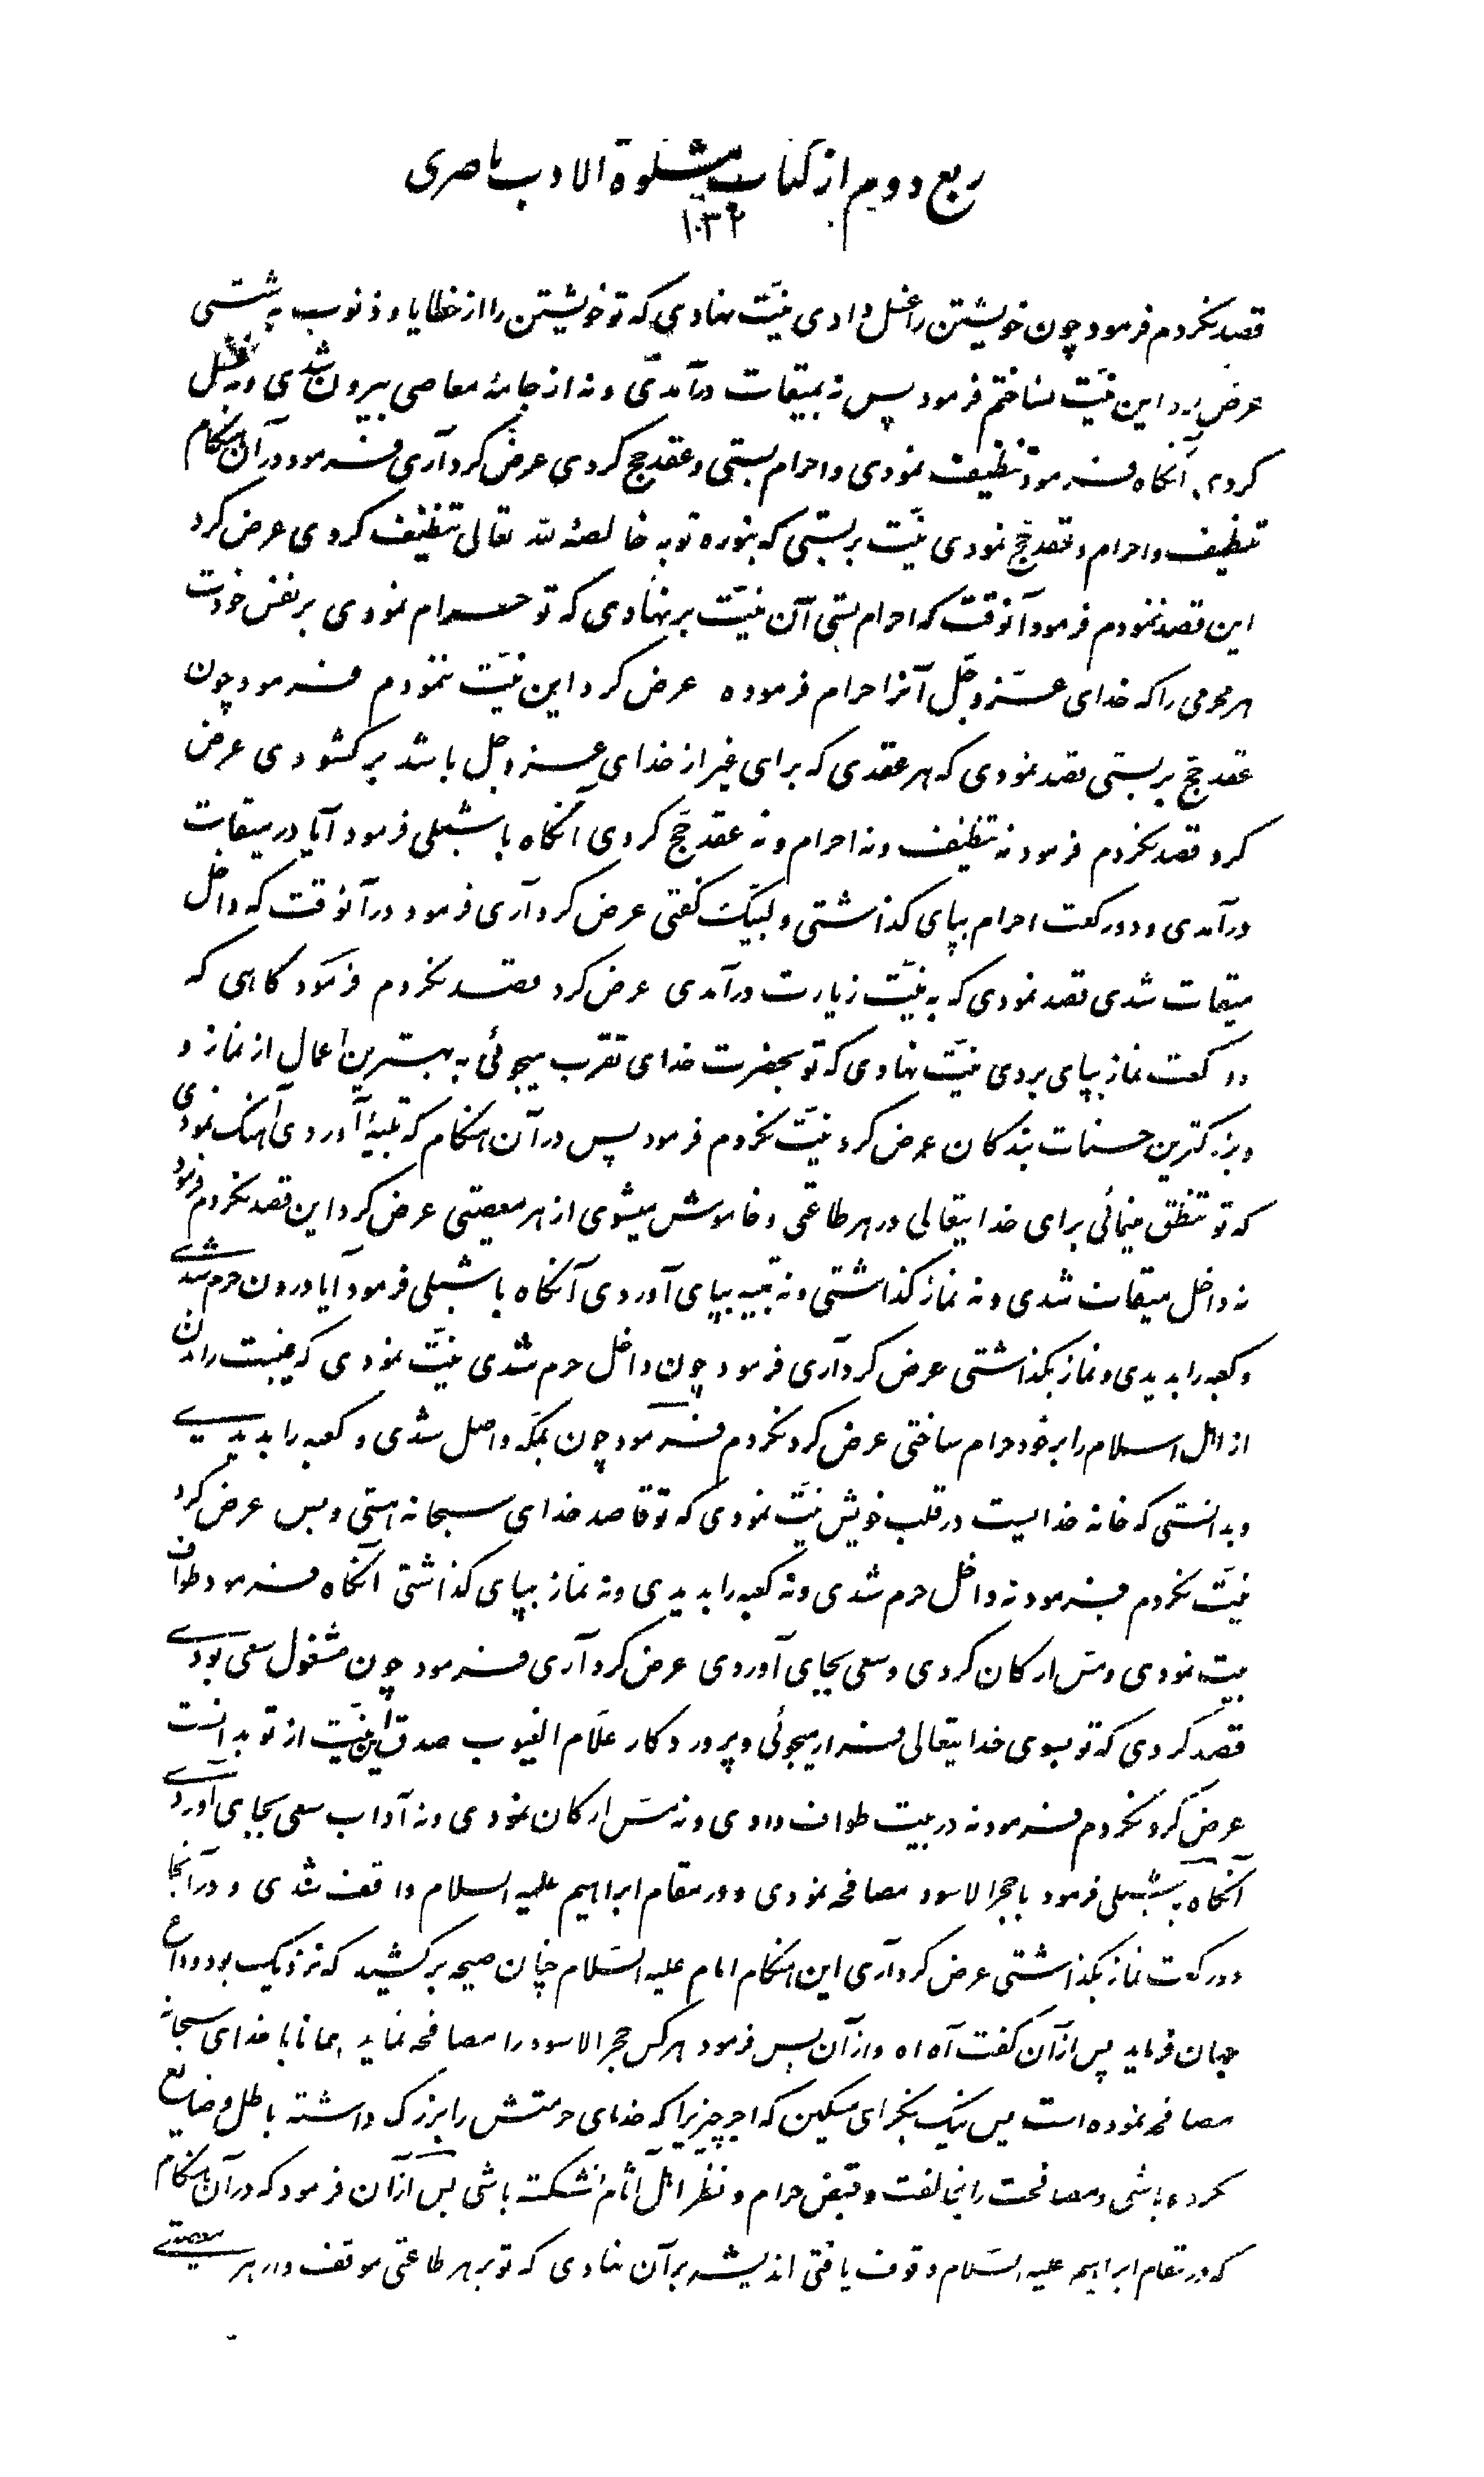 ربع دویم از کتاب مشکوة الادب ناصری
۱۰۳۲
قصد نکردم فرمود چون خویشتن را غسل دادی نیّت نهادی که تو خویشتن را از خطایا و ذنوب بشستی
عرض کرد این نیّت نساختم فرمود پس نه بمیقات درآمدی و نه از جامهٔ معاصی بیرون شدی و نه غسل
کردی آنگاه فرمود تنظیف نمودی و احرام بستی و عقد حج کردی عرض کرد آری فرمود در آن هنگام
تنظیف و احرام و عقد حجّ نمودی نیّت بربستی که بنوره توبه خالصهٔ لله تعالی تنظیف کردی عرض کرد
این قصد ننمودم فرمود آنوقت که احرام بستی آن نیّت بر نهادی که تو حرام نمودی بر نفس خودت
هر محرمی را که خدای عزّ و جلّ آنرا حرام فرموده عرض کرد این نیّت ننمودم فرمود چون
عقد حجّ بر بستی قصد نمودی که هر عقدی که برای غیر از خدای عز و جل باشد بر گشودی عرض
کرد قصد نکردم فرمود نه تنظیف و نه احرام و نه عقد حجّ کردی آنگاه با شبلی فرمود آیا در میقات
درآمدی و دو رکعت احرام بپای گذاشتی و لبیّک گفتی عرض کرد آری فرمود در آنوقت که داخل
میقات شدی قصد نمودی که به نیّت زیارت درآمدی عرض کرد قصد نکردم فرمود گاهی که
دو رکعت نماز بپای بردی نیّت نهادی که تو بحضرت خدای تقرب میجوئی به بهترین اعمال از نماز و
و بزرگترین حسنات بندگان عرض کرد نیّت نکردم فرمود پس در آن هنگام که تلبیه آوردی آهنگ نمودی
که تو تنطّق مینمائی برای خدایتعالی در هر طاعتی و خاموش میشوی از هر معصیتی عرض کرد این قصد نکردم فرمود
نه داخل میقات شدی و نه نماز گذاشتی و نه تلبیه بپای آوردی آنگاه با شبلی فرمود آیا درون حرم شدی
و کعبه را بدیدی و نماز بگذاشتی عرض کرد آری فرمود چون داخل حرم شدی نیّت نمودی که غیبت راندن
از اهل اسلام را بر خود حرام ساختی عرض کرد نکردم فرمود چون بمکّه واصل شدی و کعبه را بدیدی
و بدانستی که خانه خدایست در قلب خویش نیّت نمودی که تو قاصد خدای سبحانه هستی و بس عرض کرد
نیّت نکردم فرمود نه داخل حرم شدی و نه کعبه را بدیدی و نه نماز بپای گذاشتی آنگاه فرمود طواف
بیت نمودی و مسّ ارکان کردی و سعی بجای آوردی عرض کرد آری فرمود چون مشغول سعی بودی
قصد کردی که تو بسوی خدایتعالی فرار میجوئی و پروردگار علّام الغیوب صدق این نیّت از تو بدانست
عرض کرد نکردم فرمود نه در بیت طواف دادی و نه مسّ ارکان نمودی و نه آداب سعی بجای آوردی
آنگاه بشبلی فرمود با حجر الاسود مصافحه نمودی و در مقام ابراهیم علیه السلام واقف شدی و در آنجا
دو رکعت نماز بگذاشتی عرض کرد آری این هنگام امام علیه السّلام چنان صیحه بر کشید که نزدیک بود وداع
جهان فرماید پس از آن گفت آه اه و از آن پس فرمود هر کس حجر الاسود را مصافحه نماید همانا با خدای سبحانه
مصافحه نموده است پس نیک بنگر ای مسکین که اجر چیزیرا که خدای حرمتش را بزرگ داشته باطل و ضایع
نکرده باشی و مصافحت را بمخالفت و قبض حرام و نظر اهل آثام نشکسته باشی پس از آن فرمود که در آن هنگام
که در مقام ابراهیم علیه السّلام وقوف یافتی اندیشه بر آن نهادی که تو بر هر طاعتی موقف و از هر معصیتی